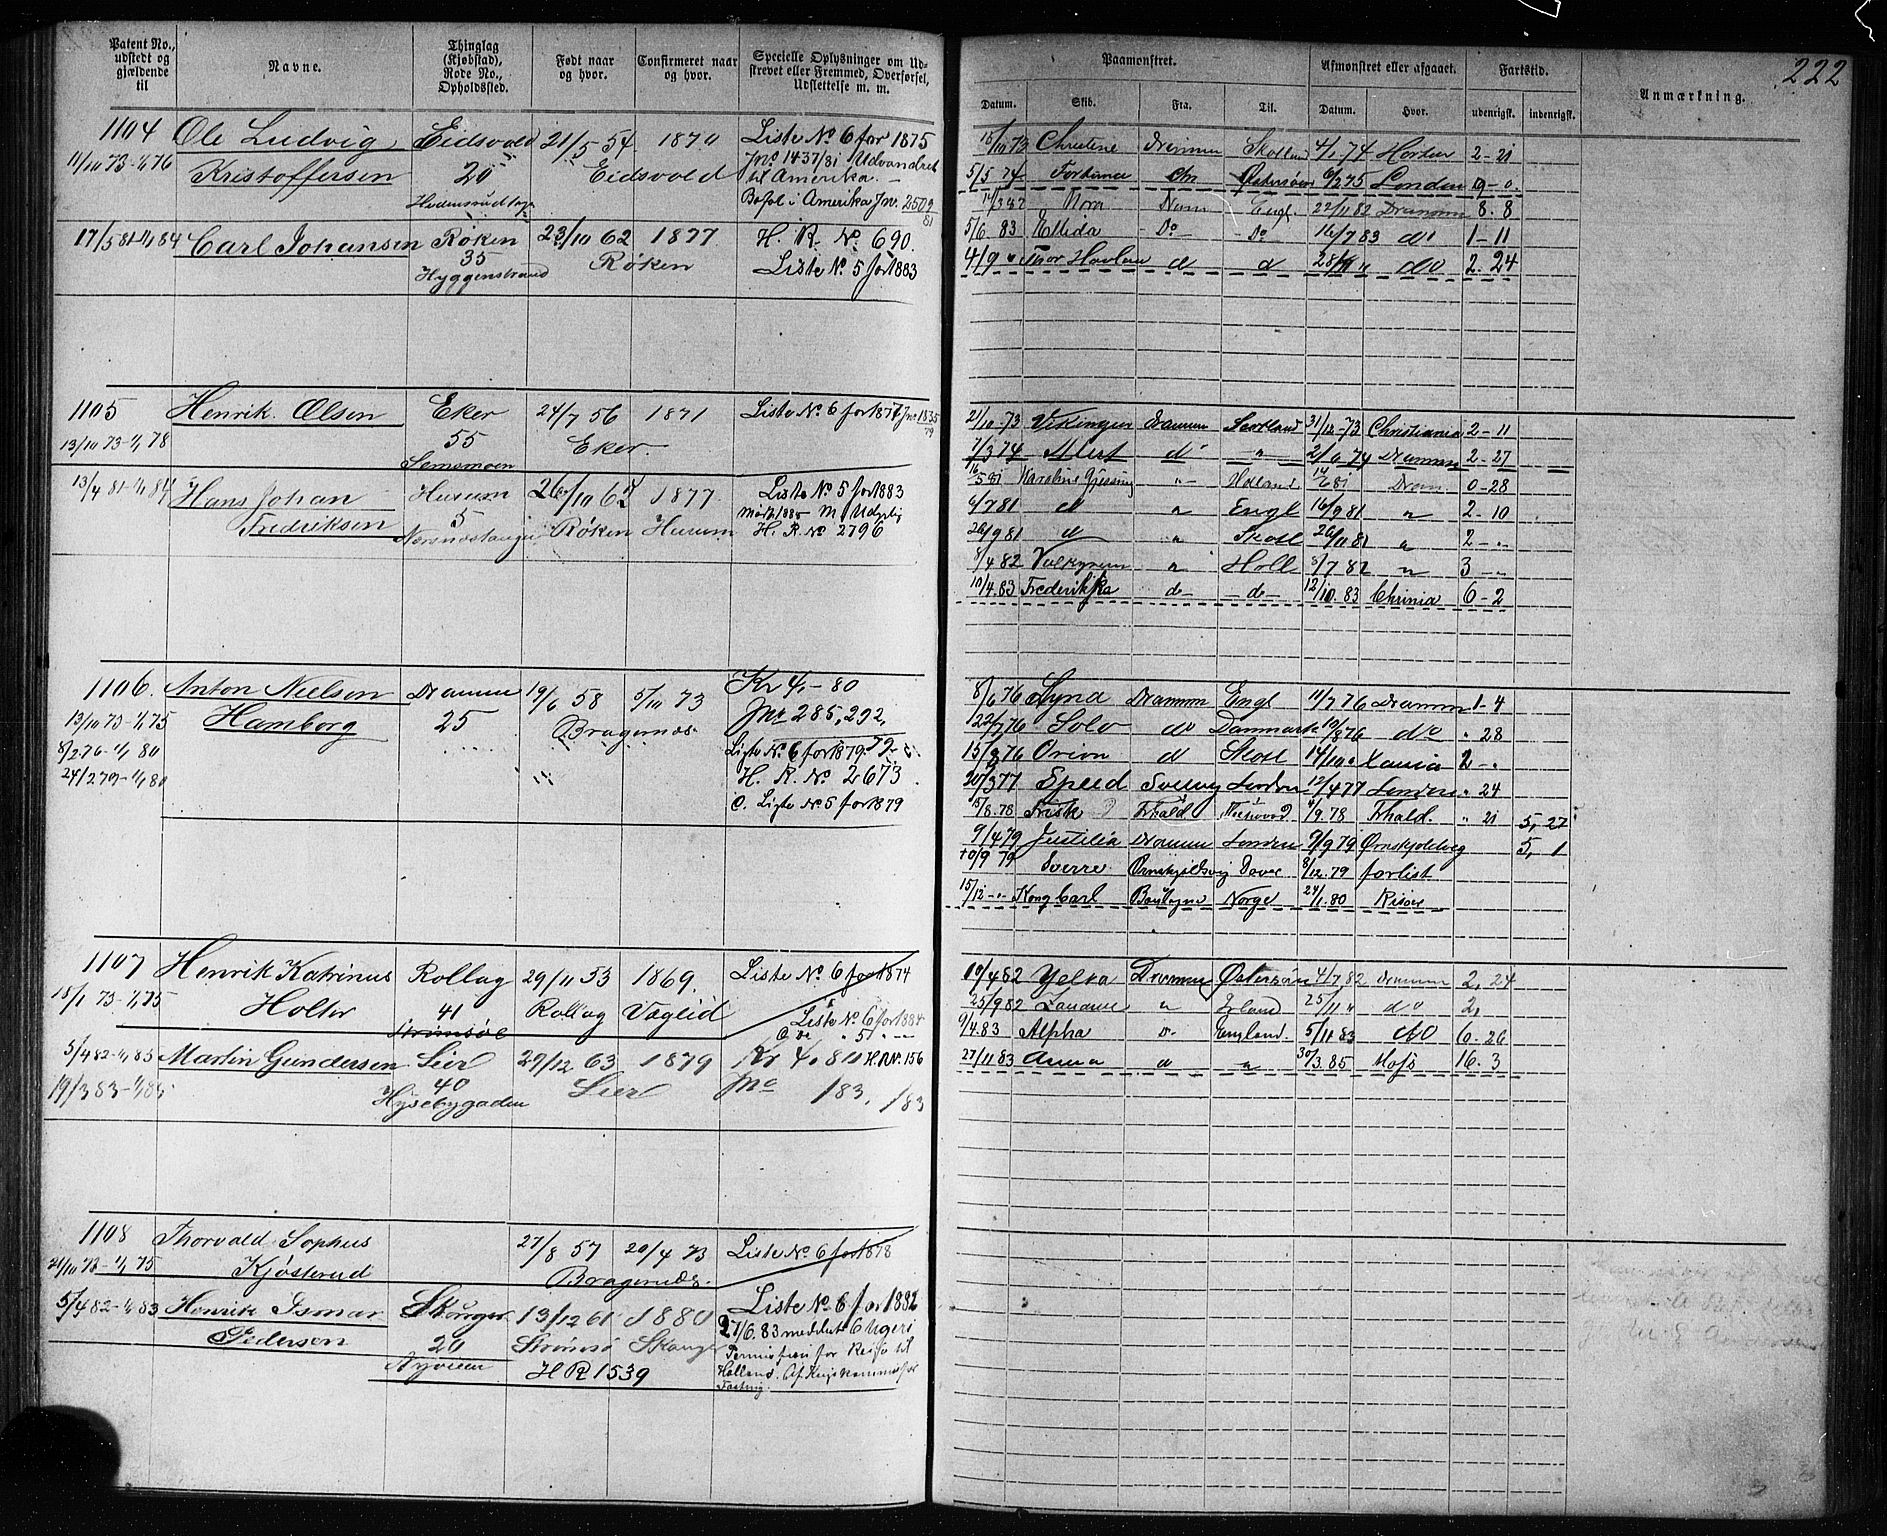 222
Patent No., udstedt og gjældende til
Navne.
Thinglag (Kjøbstad), Rode No., Opholdssted.
Født naar og hvor.
Confirmeret naar og hvor.
Specielle Oplysninger om Udstrevet eller Fremmed, Overførsel, Udslettelse m. m.
Paamønstret.
Datum. Skib. Fra. Til.
Afmønstret eller afgaaet.
Datum. Hvor.
Fartstid.
udenrigsk. indenrigsk.
Anmærkning.
1104 Ole Ludvig Eidsvold 21/5 54 1870 Liste No 6 for 1875
11/10 73-1/1 76 Kristoffersen 20 Eidsvold Jno 1437/81 Udvandret
til Amerika.
Bosat i Amerika Jn. 2509/81
17/5 81-1/1 84 Carl Johansen Røken 23/10 62 1877 H. R. No 690.
35 Røken Liste No 5 for 1883
Hyggenstrand
15/10 73 Christine Drammen Skotland 4/1 74 Horten 2-21
5/5 74 Fortuna Østersøen 6/2 75 London 9-0
14/3 82 Dram Engl. 22/11 82 Drammen 8.8
5/6 83 Ellida Do Do 16/7 83 do 1-11
4/9 " Thor Havlan d d " do 2.24
1105 Henrik Olsen Eker 24/7 56 1871 Liste No 6 for 1877 Jno 1835/79
13/10 73-1/1 78 55 Eker.
Semsmoen
13/4 81-1/1 84 Hans Johan Hurum 26/10 62 1877 Liste No 5 for 1883
Fredriksen 5 Røken Hurum
Nærsnestangen H. R. No 2796
21/10 73 Vikingen Drammen Skotland 31/12-73 Christiania 2-11
7/3 74 Alert d " 2/6 74 Drammen 2-27
16/5 81 Karoline Gjessing " Holland 14/6 81 Dram 0-28
6/7 81 d " Engl 16/9 81 " 2-10
26/9 81 d " Skotl 26/11 81 " 2-"
8/4 82 Valkyrien " Holl 8/7 82 " 3-"
10/4.83 Frederikka d- -d- 12/10.83 Chrinia 6-2
1106. Anton Nielsen Drammen 19/6 58 5/10 73 Kr 4,-80
13/10 73-1/1 75 Hamborg 25 Bragernæs. Jno 285,292,
8/2 76-1/1 80 Liste No 6 for 1879
24/2 79-1/1 80 H. R. No 2673
C. Liste No 5 for 1879
8/6 76 Lyna Drammen Engl 11/7 76 Drammen 1-4
22/7 76 Solo do Danmark 19/8 76 do " 28
15/8 76 Orion d Skotl 14/10 " Xania 2-"
20/3 77 Speed Solvig London 12/4 77 London " 24
8/8.78 Frisk Frhald 4/9.78 Frhald. " 21 5,27
9/4 79 Justitia Drammen London 9/9 79 Ørnskjoldsvig 5,1
10/9 79 Sverre Ørnskjoldsvig Dover 8/12.79 forlist
15/12-" Kong Carl Boulogne Norge 24/1.80 Risøer
1107 Henrik Katrinus Rollag 29/11 53 1869. Liste No 6 for 1874
18/1 73-1/1 75 Holter 41 Rollag Vaglid
Strømsøe Liste No 6 for 1884
5/4 82-1/1 85 Martin Gundersen Lier 29/12 63 1879 Kr 4,80 H.R.No.156
19/3 83-1/1 85 40 Lier Jno 183, 183
Hysebygaden
10/4 82 Yelva Drammen Østersøen 4/7 82 Drammen 2,24
25/9 82 " 25/11 " do 2,
9/4.83 Alpha d- England. 5/11 83 do 6-26
27/11 83 Anna d " 30/3.85 Moss 16.3
1108 Thorvald Sophus 27/8 57 20/4 73 Liste No 6 for 1878
21/10 73-1/1 75 Kjøsterud Bragernæs.
5/4 82-1/1 83 Henrik Ismar Skouger 13/12 61 1880 Liste No 6 for 1882
Pedersen 20 Strømsø Skouger 27/6.83 meddelt 6 Ugers
H R 1539 Permission for Reise til
Holland. Af Krigskommissær
Fasting.